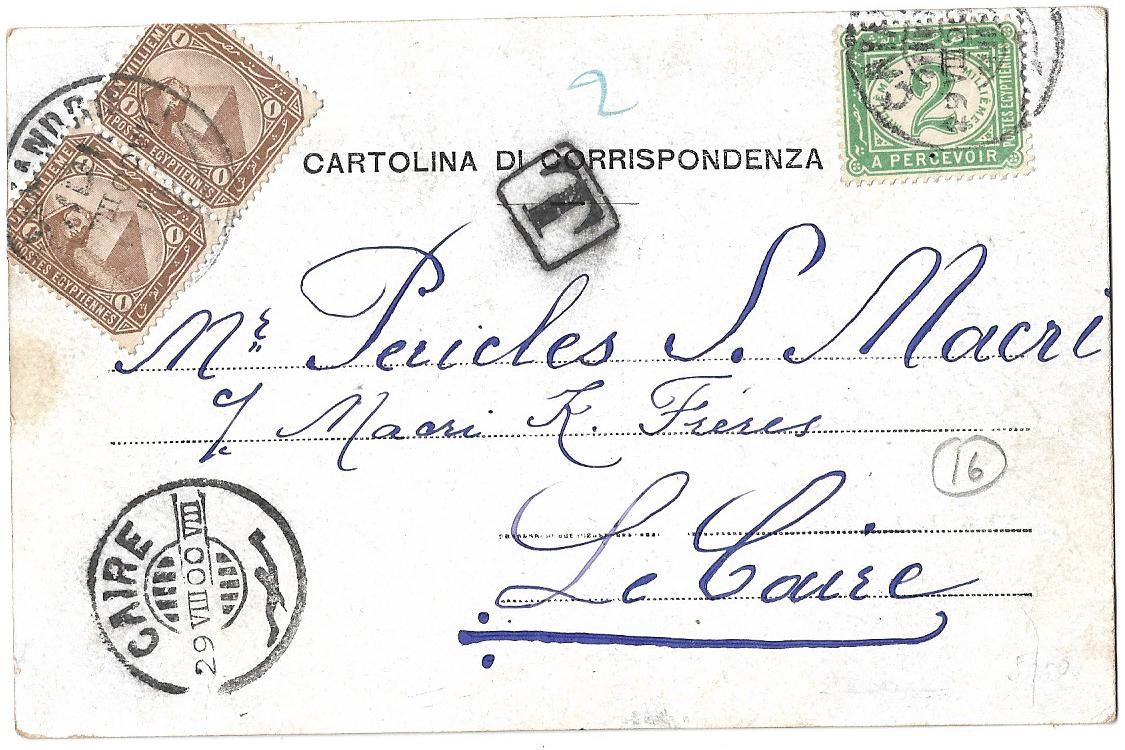 2
CARTOLINA DI CORRISPONDENZA
T
2
MILLIEMES
POSTES EGYPTIENNES
A PERCEVOIR
UN MILLIEME
1
1
POSTES EGYPTIENNES
UN MILLIEME
1
1
POSTES EGYPTIENNES
Mr. Pericles S. Macri
c/. Macri K. Frères
16
Le Caire
CAIRE
29 VIII 00 VII